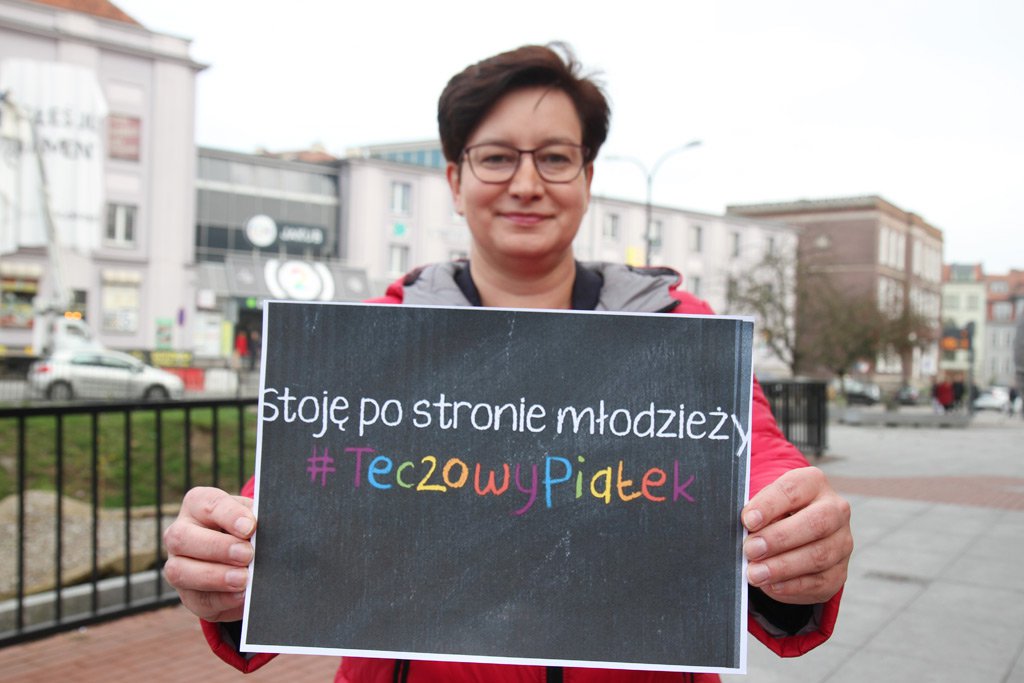 Stoję po stronie młodzieży
#TęczowyPiątek
JAKUB